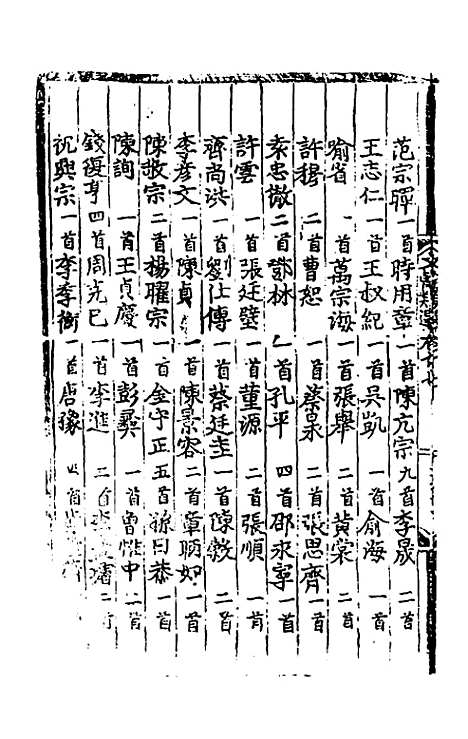 范宗暉一首時用章一首陳亢宗九首李晟二首
王志仁一首王叔紀一首吳凱一首俞海一首
喻省一首萬宗海一首張舉二首黃棠二首
許穆二首曹恕一首蔡杲二首張思齊一首
秦忠徹二首鄧林一首孔平四首邵永寧一首
許雲一首張廷璧一首董源二首張順一首
齊尚洪一首劉仕傳一首蔡廷圭一首陳敦二首
李彥文一首陳貞一首陳景容二首章昞如一首
陳敬宗二首楊曜宗一首金守正五首孫曰恭一首
陳詢一首王貞慶一首彭㬊一首曾惟中二首
錢復亨四首周光己一首李進二首
沉興宗一首李季衡一首唐豫四首